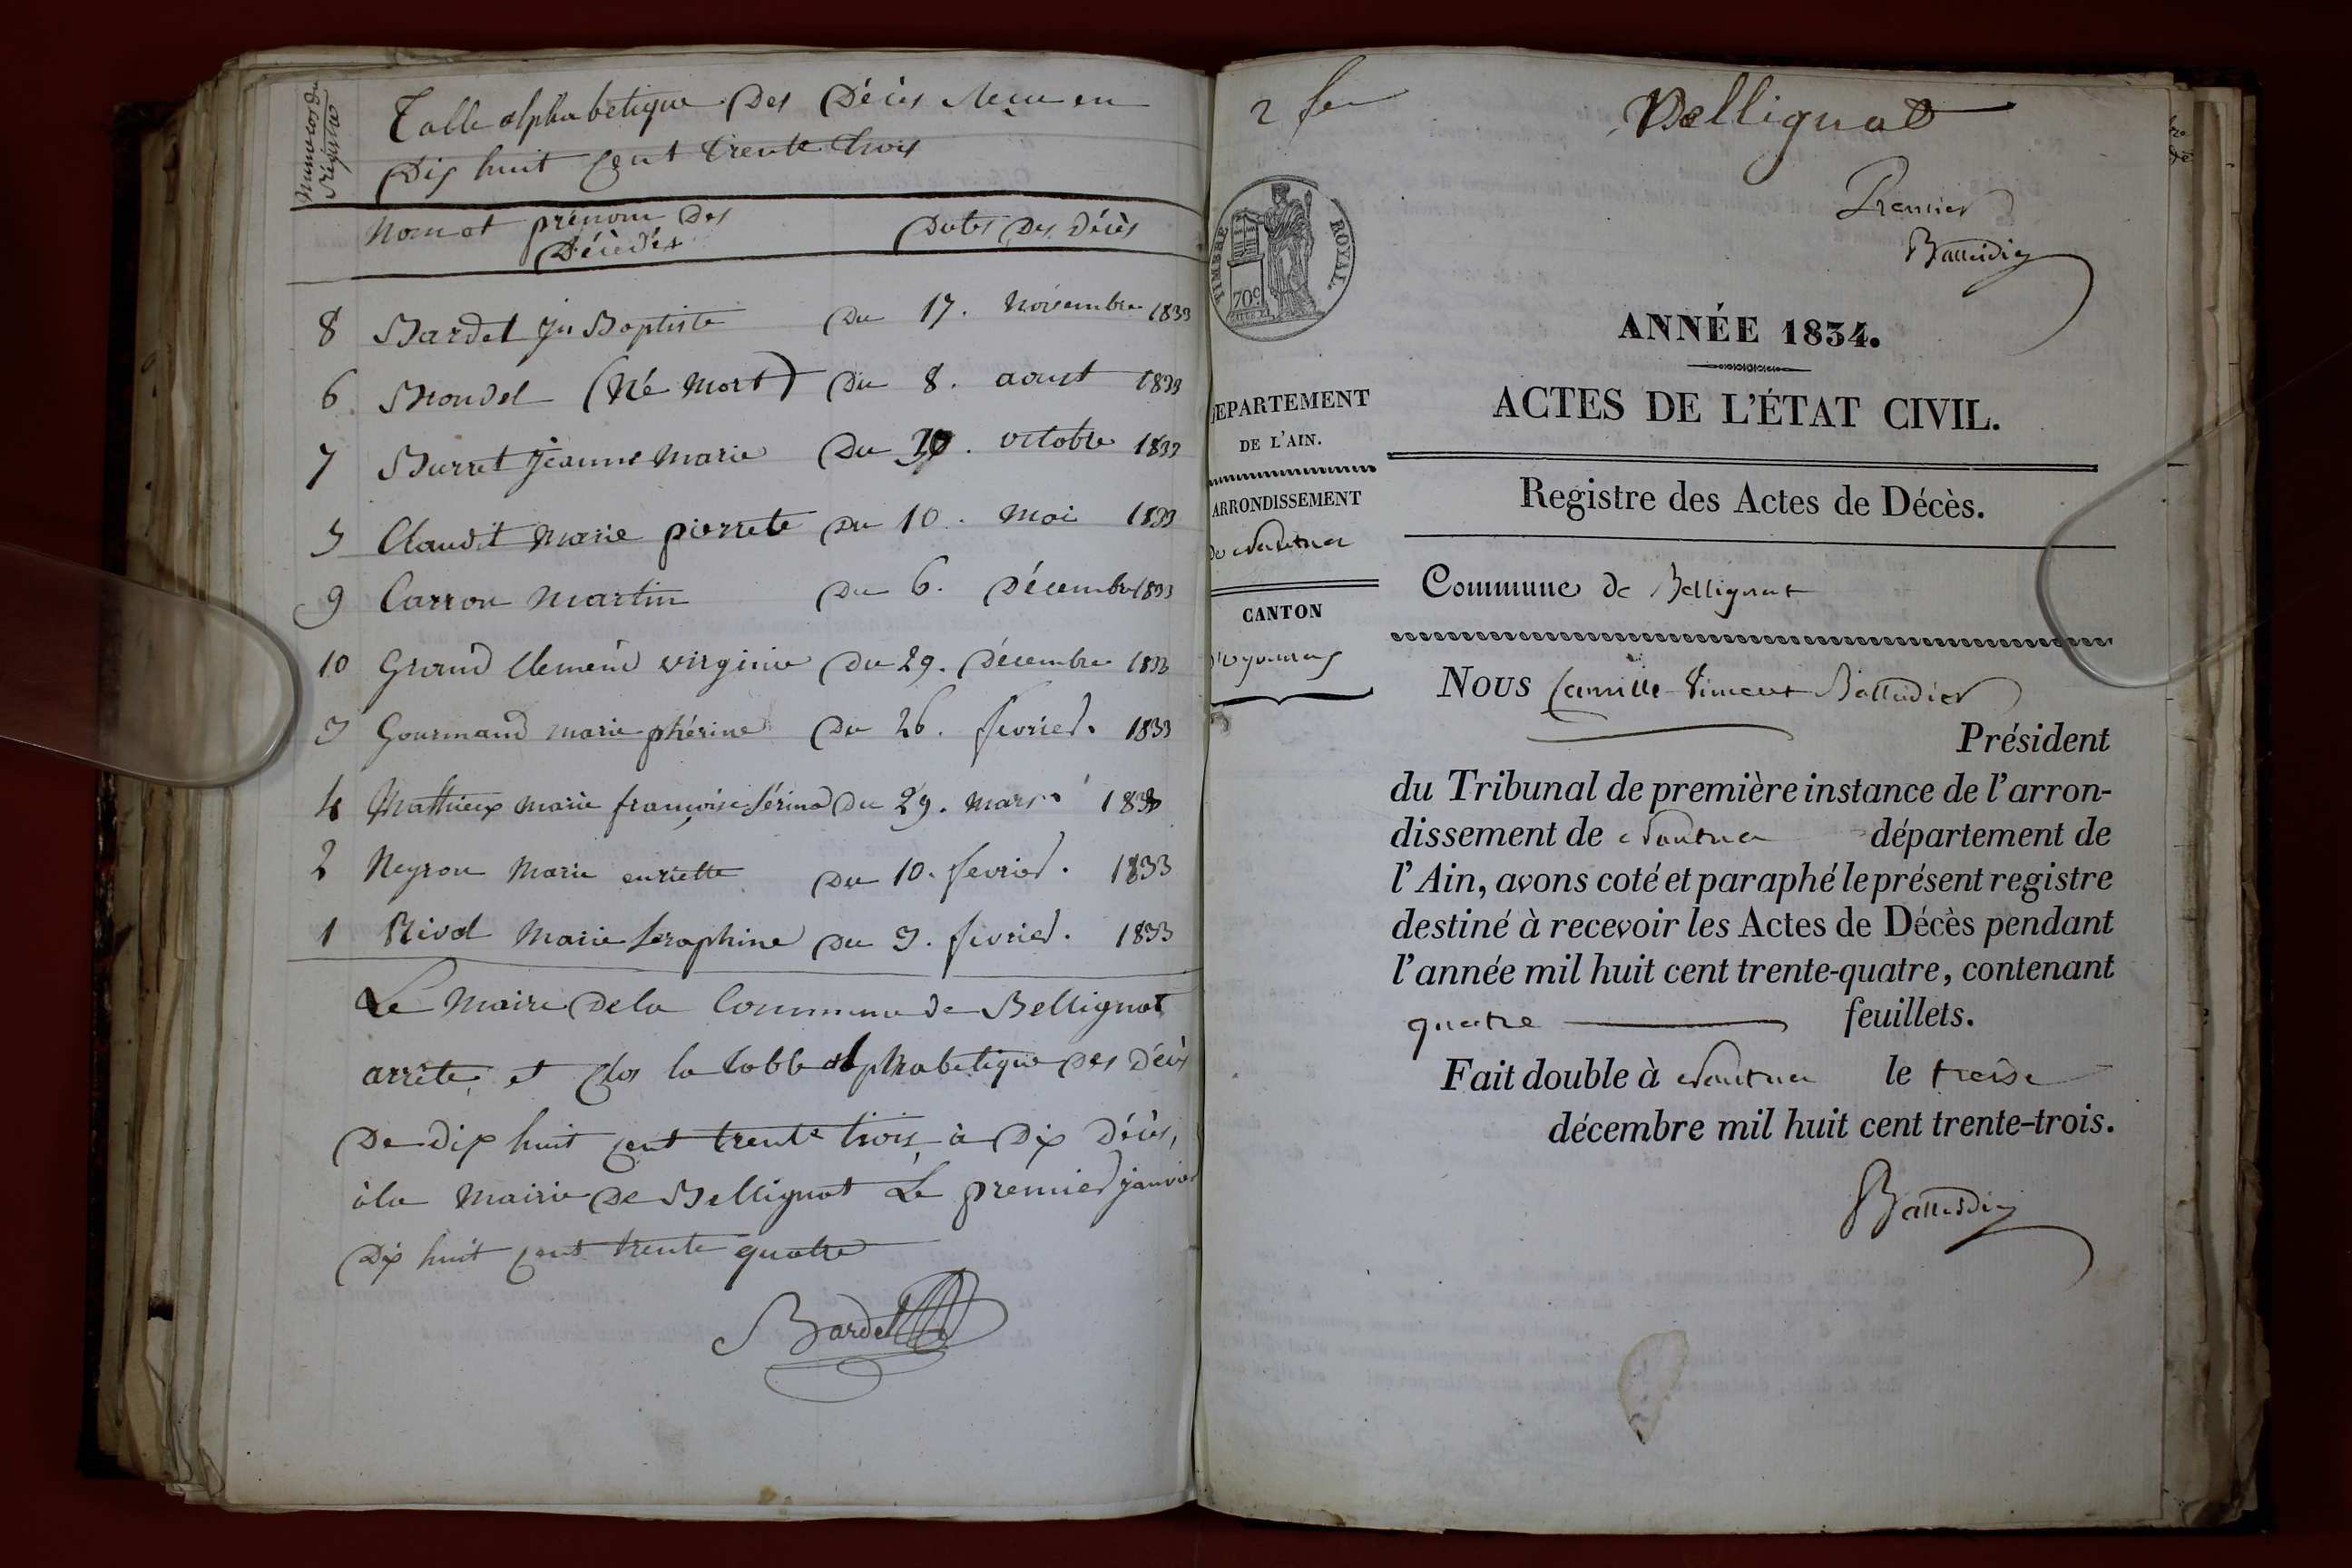 Numeros du
Régistre
Table alphabetique Des Décès Reçu en
Dix huit Cent trente trois
Nom et prénom Des
Décèdés
Dates Des Décès
8 Bardet Jn Baptiste Du 17. Novembre 1833
6 Blondel (Né Mort) Du 8. aoust 1833
7 Burret Jeanne Marie Du 30. octobre 1833
5 Claudit Marie pierrete Du 10. Mai 1833
9 Carron Martin Du 6. Décembre 1833
10 Grand Clement virginie Du 29. Décembre 1833
3 Gourmand Marie phérine Du 26. fevrier. 1833
4 Mathieux Marie françoise Sérine Du 29. Mars. 1833
2 Neyron Marie enriette Du 10. fevrier. 1833
1 Rivol Marie Seraphine Du 3. fevrier. 1833
Le Maire De la Commune de Bellignat
arrête et clos la table alphabetique Des Décès
De dix huit Cent trente trois, à Dix Décès,
à la Mairie De Bellignat Le premier janvier
Dix huit Cent trente quatre
Bardet
Bellignat
Premier
TIMBRE ROYAL
70c
ANNÉE 1834.
DEPARTEMENT
DE L'AIN.
ACTES DE L'ÉTAT CIVIL.
ARRONDISSEMENT
De Nantua
Registre des Actes de Décès.
CANTON
D'oyonnax
Commune de Bellignat
NOUS Camille Vincent
Président
du Tribunal de première instance de l'arron-
dissement de Nantua département de
l'Ain, avons coté et paraphé le présent registre
destiné à recevoir les Actes de Décès pendant
l'année mil huit cent trente-quatre, contenant
quatre feuillets.
Fait double à Nantua le treize
décembre mil huit cent trente-trois.